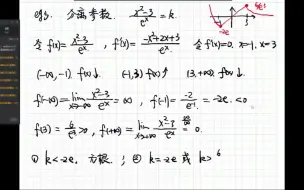 eg3. 分离参数. \frac{x^2-3}{e^x}=k.
-2e
令 f(x)=\frac{x^2-3}{e^x}, f'(x)=\frac{-x^2+2x+3}{e^x} 令 f'(x)=0, x=-1, x=3
(-∞,-1) f(x)↓. (-1,3) f(x)↑ (3,+∞) f(x)↓.
f(-∞)=\lim_{x→-∞}\frac{x^2-3}{e^x}=∞, f(-1)=\frac{-2}{e^{-1}}=-2e<0
f(3)=\frac{6}{e^3}>0, f(+∞)=\lim_{x→+∞}\frac{x^2-3}{e^x}=0.
① k<-2e, 无根; ② k=-2e 或 k>6